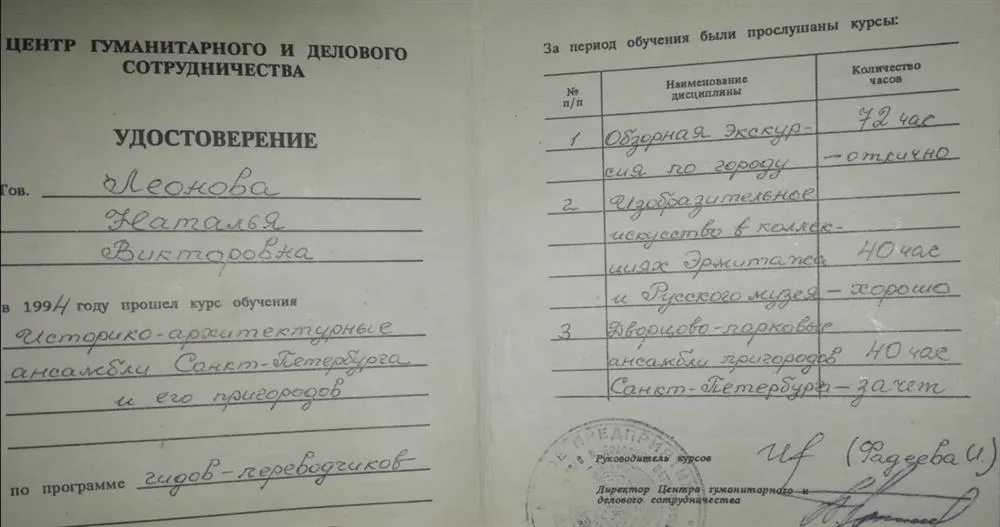 ЦЕНТР ГУМАНИТАРНОГО И ДЕЛОВОГО
СОТРУДНИЧЕСТВА
УДОСТОВЕРЕНИЕ
Тов. Леонова
Наталья
Викторовна
в 1994 году прошел курс обучения
Историко-архитектурные
ансамбли Санкт-Петербурга
и его пригородов
по программе гидов-переводчиков
За период обучения были прослушаны курсы:
№ п/п Наименование дисциплины Количество часов
1 Обзорная Экскур- 72 час
сия по городу - отлично
2 Изобразительное
искусство в коллек-
циях Эрмитажа 40 час
и Русского музея - хорошо
3 Дворцово-парковые
ансамбли пригородов 40 час
Санкт-Петербурга - зачет
Руководитель курсов (Фадеева И.)
Директор Центра гуманитарного и
делового сотрудничества